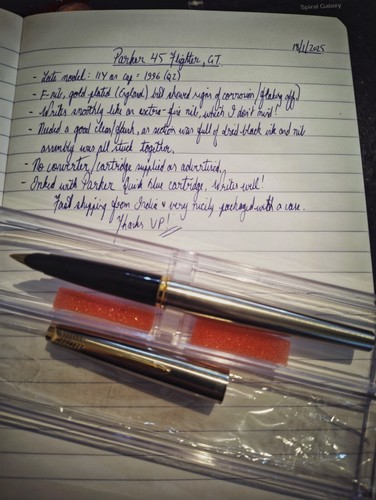 Spiral Galaxy
14/1/2025
Parker 45 Flighter, GT.
- Late model: IIY on cap = 1996 (Q2)
- F-nib, gold plated (England) but showed signs of corrosion/flaking off
- Writes smoothly like an extra-fine nib, which I don't mind!
- Needed a good clean/flush, as section was full of dried black ink and nib
assembly was all stuck together.
- No converter/cartridge supplied as advertised.
- Inked with Parker Quink blue cartridge, writes well!
Fast shipping from India & very nicely packaged with a case.
Thanks VP!